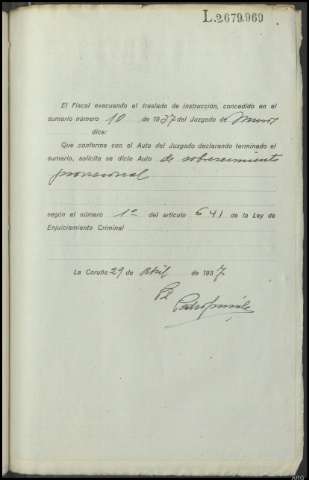 L.2679.969
El Fiscal evacuando el traslado de instrucción, concedido en el
sumario número 10 de 1937 del Juzgado de Muros
dice:
Que conforme con el Auto del Juzgado declarando terminado el
sumario, solicita se dicte Auto de sobreseimiento
provisional
según el número 1º del artículo 641 de la Ley de
Enjuiciamiento Criminal
La Coruña 29 de Abril de 1937